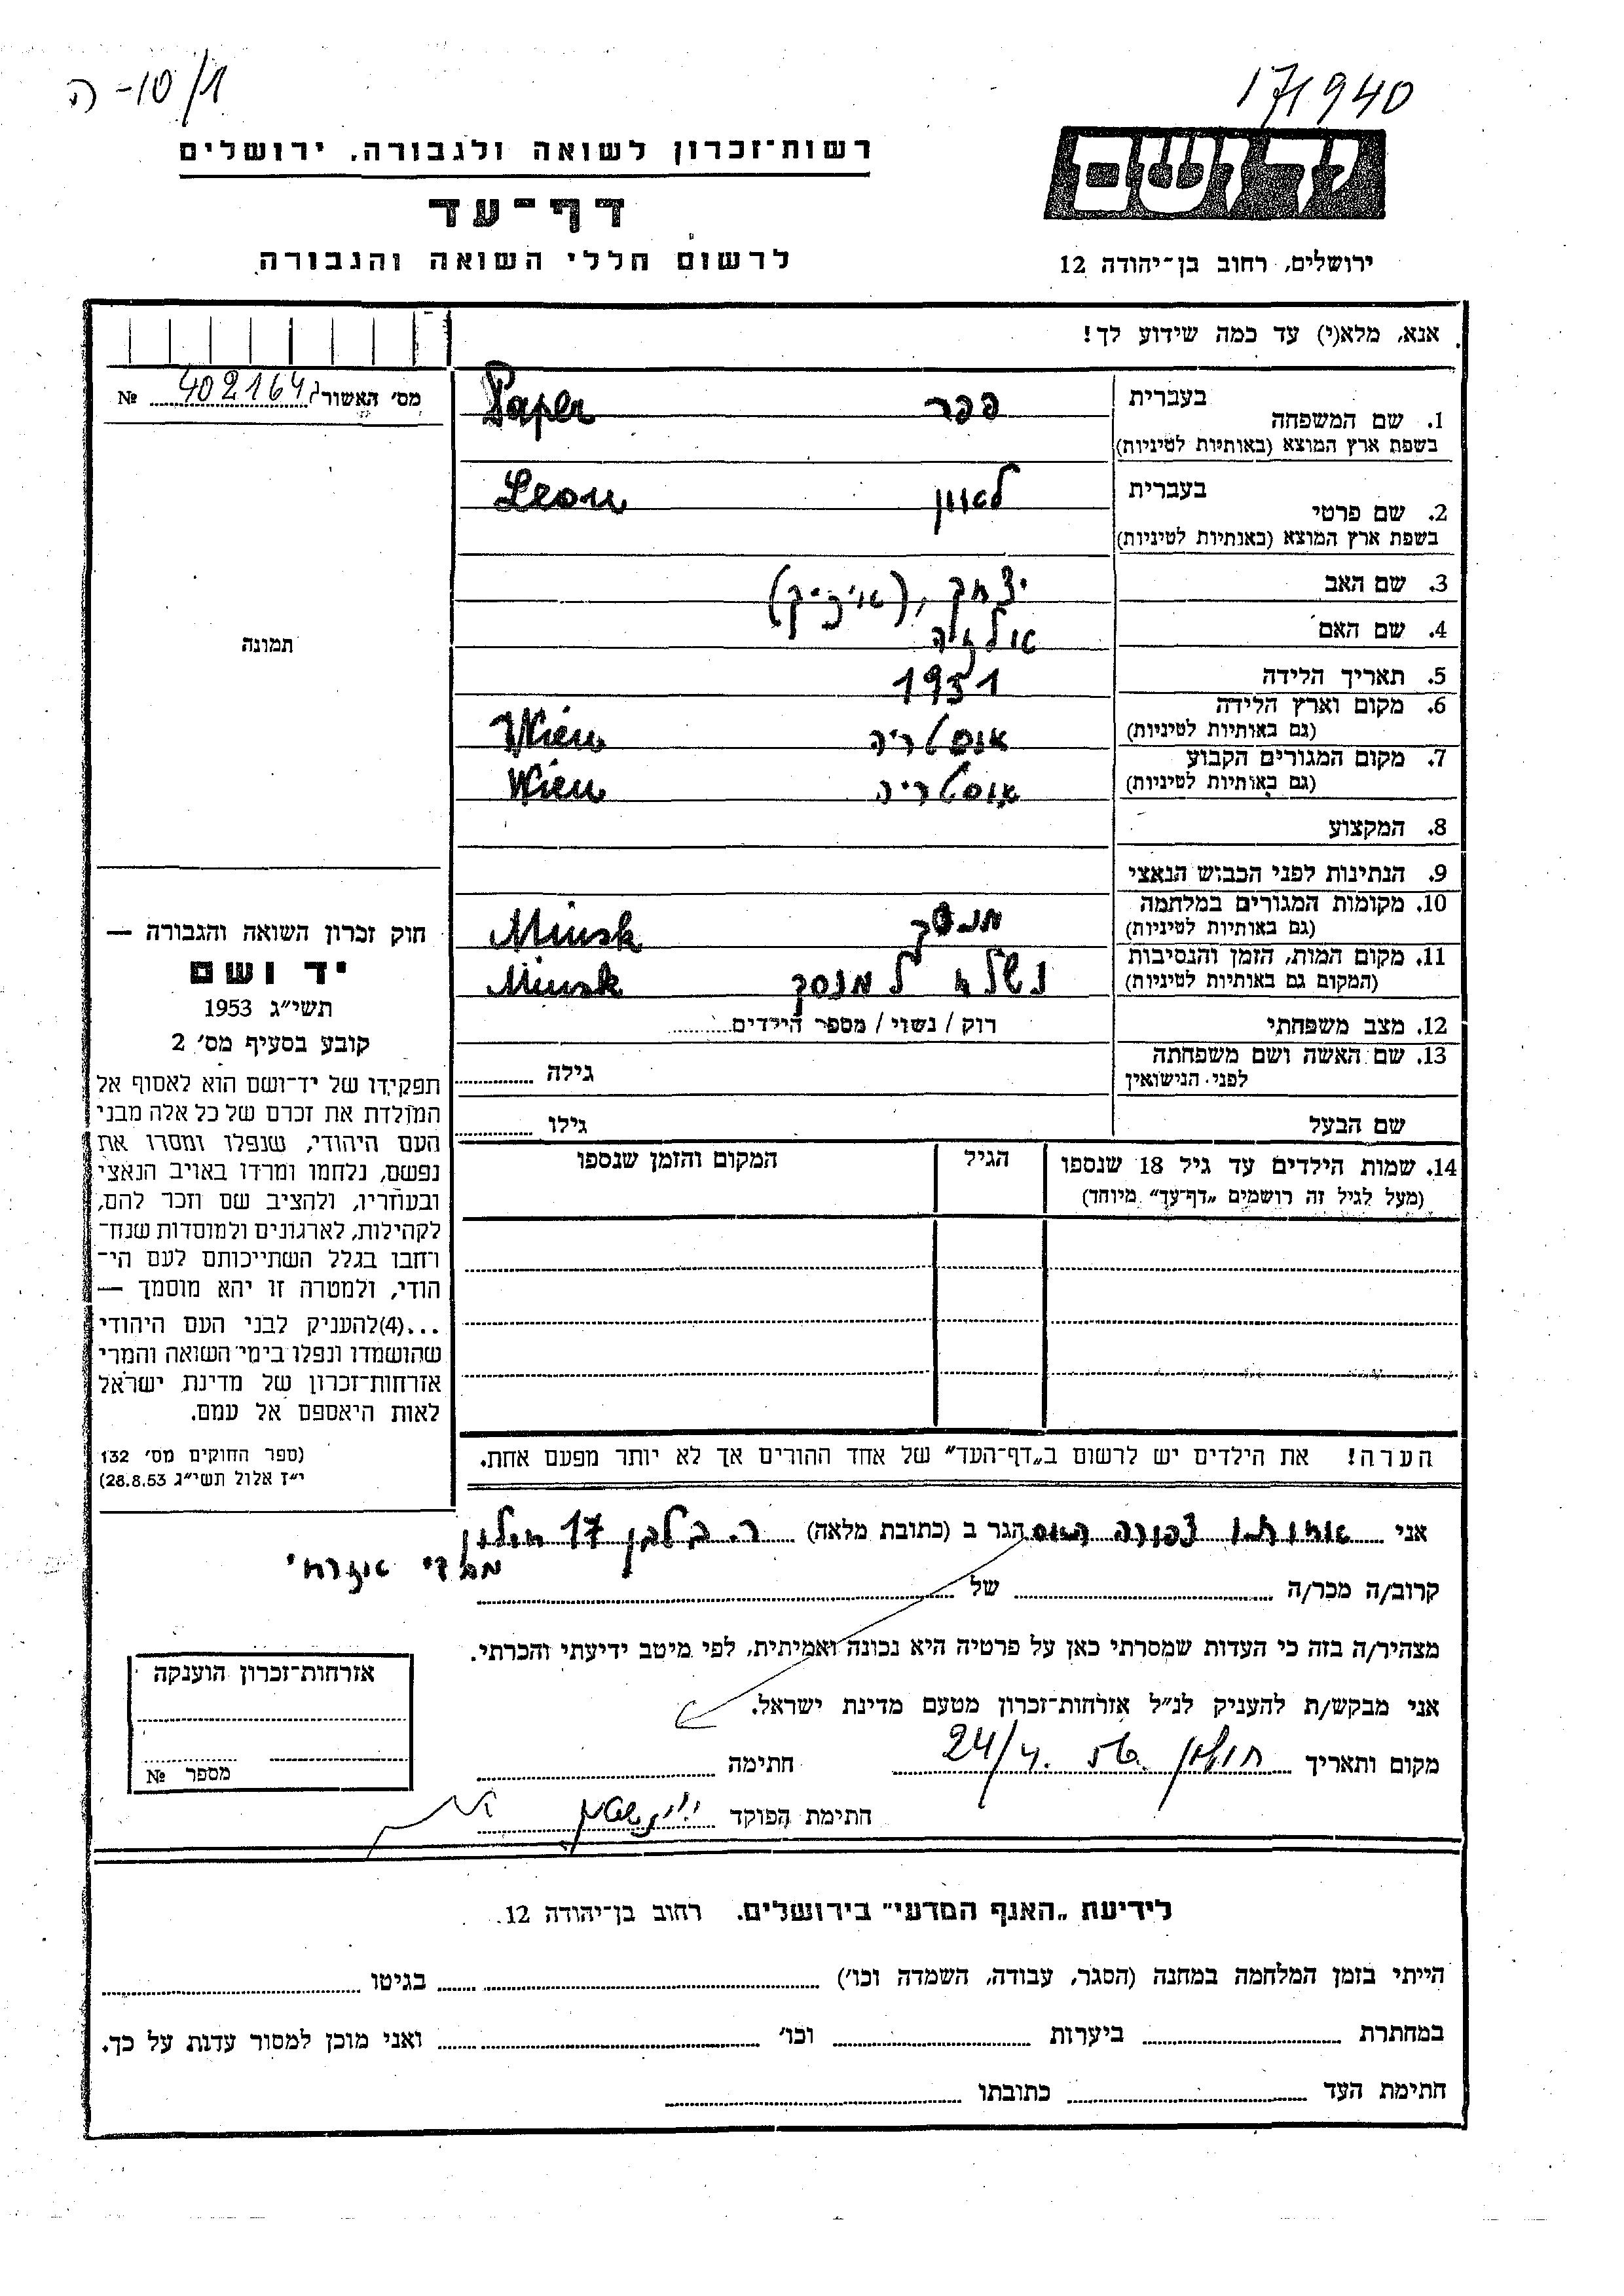 ה -10/1
171940
יד ושם
ירושלים, רחוב בן־יהודה 12
רשות־זכרון לשואה ולגבורה, ירושלים
דף־עד
לרשום חללי השואה והגבורה
אנא, מלא(י) עד כמה שידוע לך!
מס׳ האשור 402164 №
תמונה
1. שם המשפחה בעברית פפר Paper
בשפת ארץ המוצא (באותיות לטיניות)
2. שם פרטי בעברית לאון Leon
בשפת ארץ המוצא (באותיות לטיניות)
3. שם האב יצחק, (איציק)
4. שם האם
5. תאריך הלידה 1931
6. מקום וארץ הלידה אוסטריה Wien
(גם באותיות לטיניות)
7. מקום המגורים הקבוע אוסטריה Wien
(גם באותיות לטיניות)
8. המקצוע
9. הנתינות לפני הכבוש הנאצי
10. מקומות המגורים במלחמה מנסק Minsk
(גם באותיות לטיניות)
11. מקום המות, הזמן והנסיבות נשלח למנסק Minsk
(המקום גם באותיות לטיניות)
12. מצב משפחתי רוק / נשוי / מספר הילדים
13. שם האשה ושם משפחתה
לפני הנישואין גילה
שם הבעל גילו
14. שמות הילדים עד גיל 18 שנספו הגיל המקום והזמן שנספו
(מעל לגיל זה רושמים „דף־עד״ מיוחד)
הערה! את הילדים יש לרשום ב„דף־העד״ של אחד ההורים אך לא יותר מפעם אחת.
חוק זכרון השואה והגבורה —
יד ושם
תשי״ג 1953
קובע בסעיף מס׳ 2
תפקידו של יד־ושם הוא לאסוף אל
המולדת את זכרם של כל אלה מבני
העם היהודי, שנפלו ומסרו את
נפשם, נלחמו ומרדו באויב הנאצי
ובעוזריו, ולהציב שם וזכר להם,
לקהילות, לארגונים ולמוסדות שנח־
רחבו בגלל השתייכותם לעם הי־
הודי, ולמטרה זו יהא מוסמך —
...(4)להעניק לבני העם היהודי
שהושמדו ונפלו בימי השואה והמרי
אזרחות־זכרון של מדינת ישראל
לאות היאספם אל עמם.
(ספר החוקים מס׳ 132
י״ז אלול תשי״ג 28.8.53)
אני אחותו צפורה האס הגר ב (כתובת מלאה) ר. 17 חולון
קרוב/ה מכר/ה של
מצהיר/ה בזה כי העדות שמסרתי כאן על פרטיה היא נכונה ואמיתית, לפי מיטב ידיעתי והכרתי.
אני מבקש/ת להעניק לנ״ל אזרחות־זכרון מטעם מדינת ישראל.
מקום ותאריך חולון 24/4. 56 חתימה
חתימת הפוקד
אזרחות־זכרון הוענקה
מספר №
לידיעת „האגף המדעי״ בירושלים. רחוב בן־יהודה 12.
הייתי בזמן המלחמה במחנה (הסגר, עבודה, השמדה וכו׳) בגיטו
במחתרת ביערות וכו׳ ואני מוכן למסור עדות על כך.
חתימת העד כתובתו